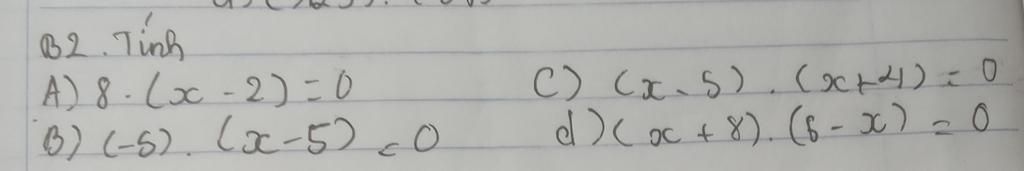 B2. Tính
A) 8 . (x - 2) = 0
C) (x - 5) . (x + 4) = 0
B) (-5) . (x - 5) = 0
d) (x + 8) . (6 - x) = 0